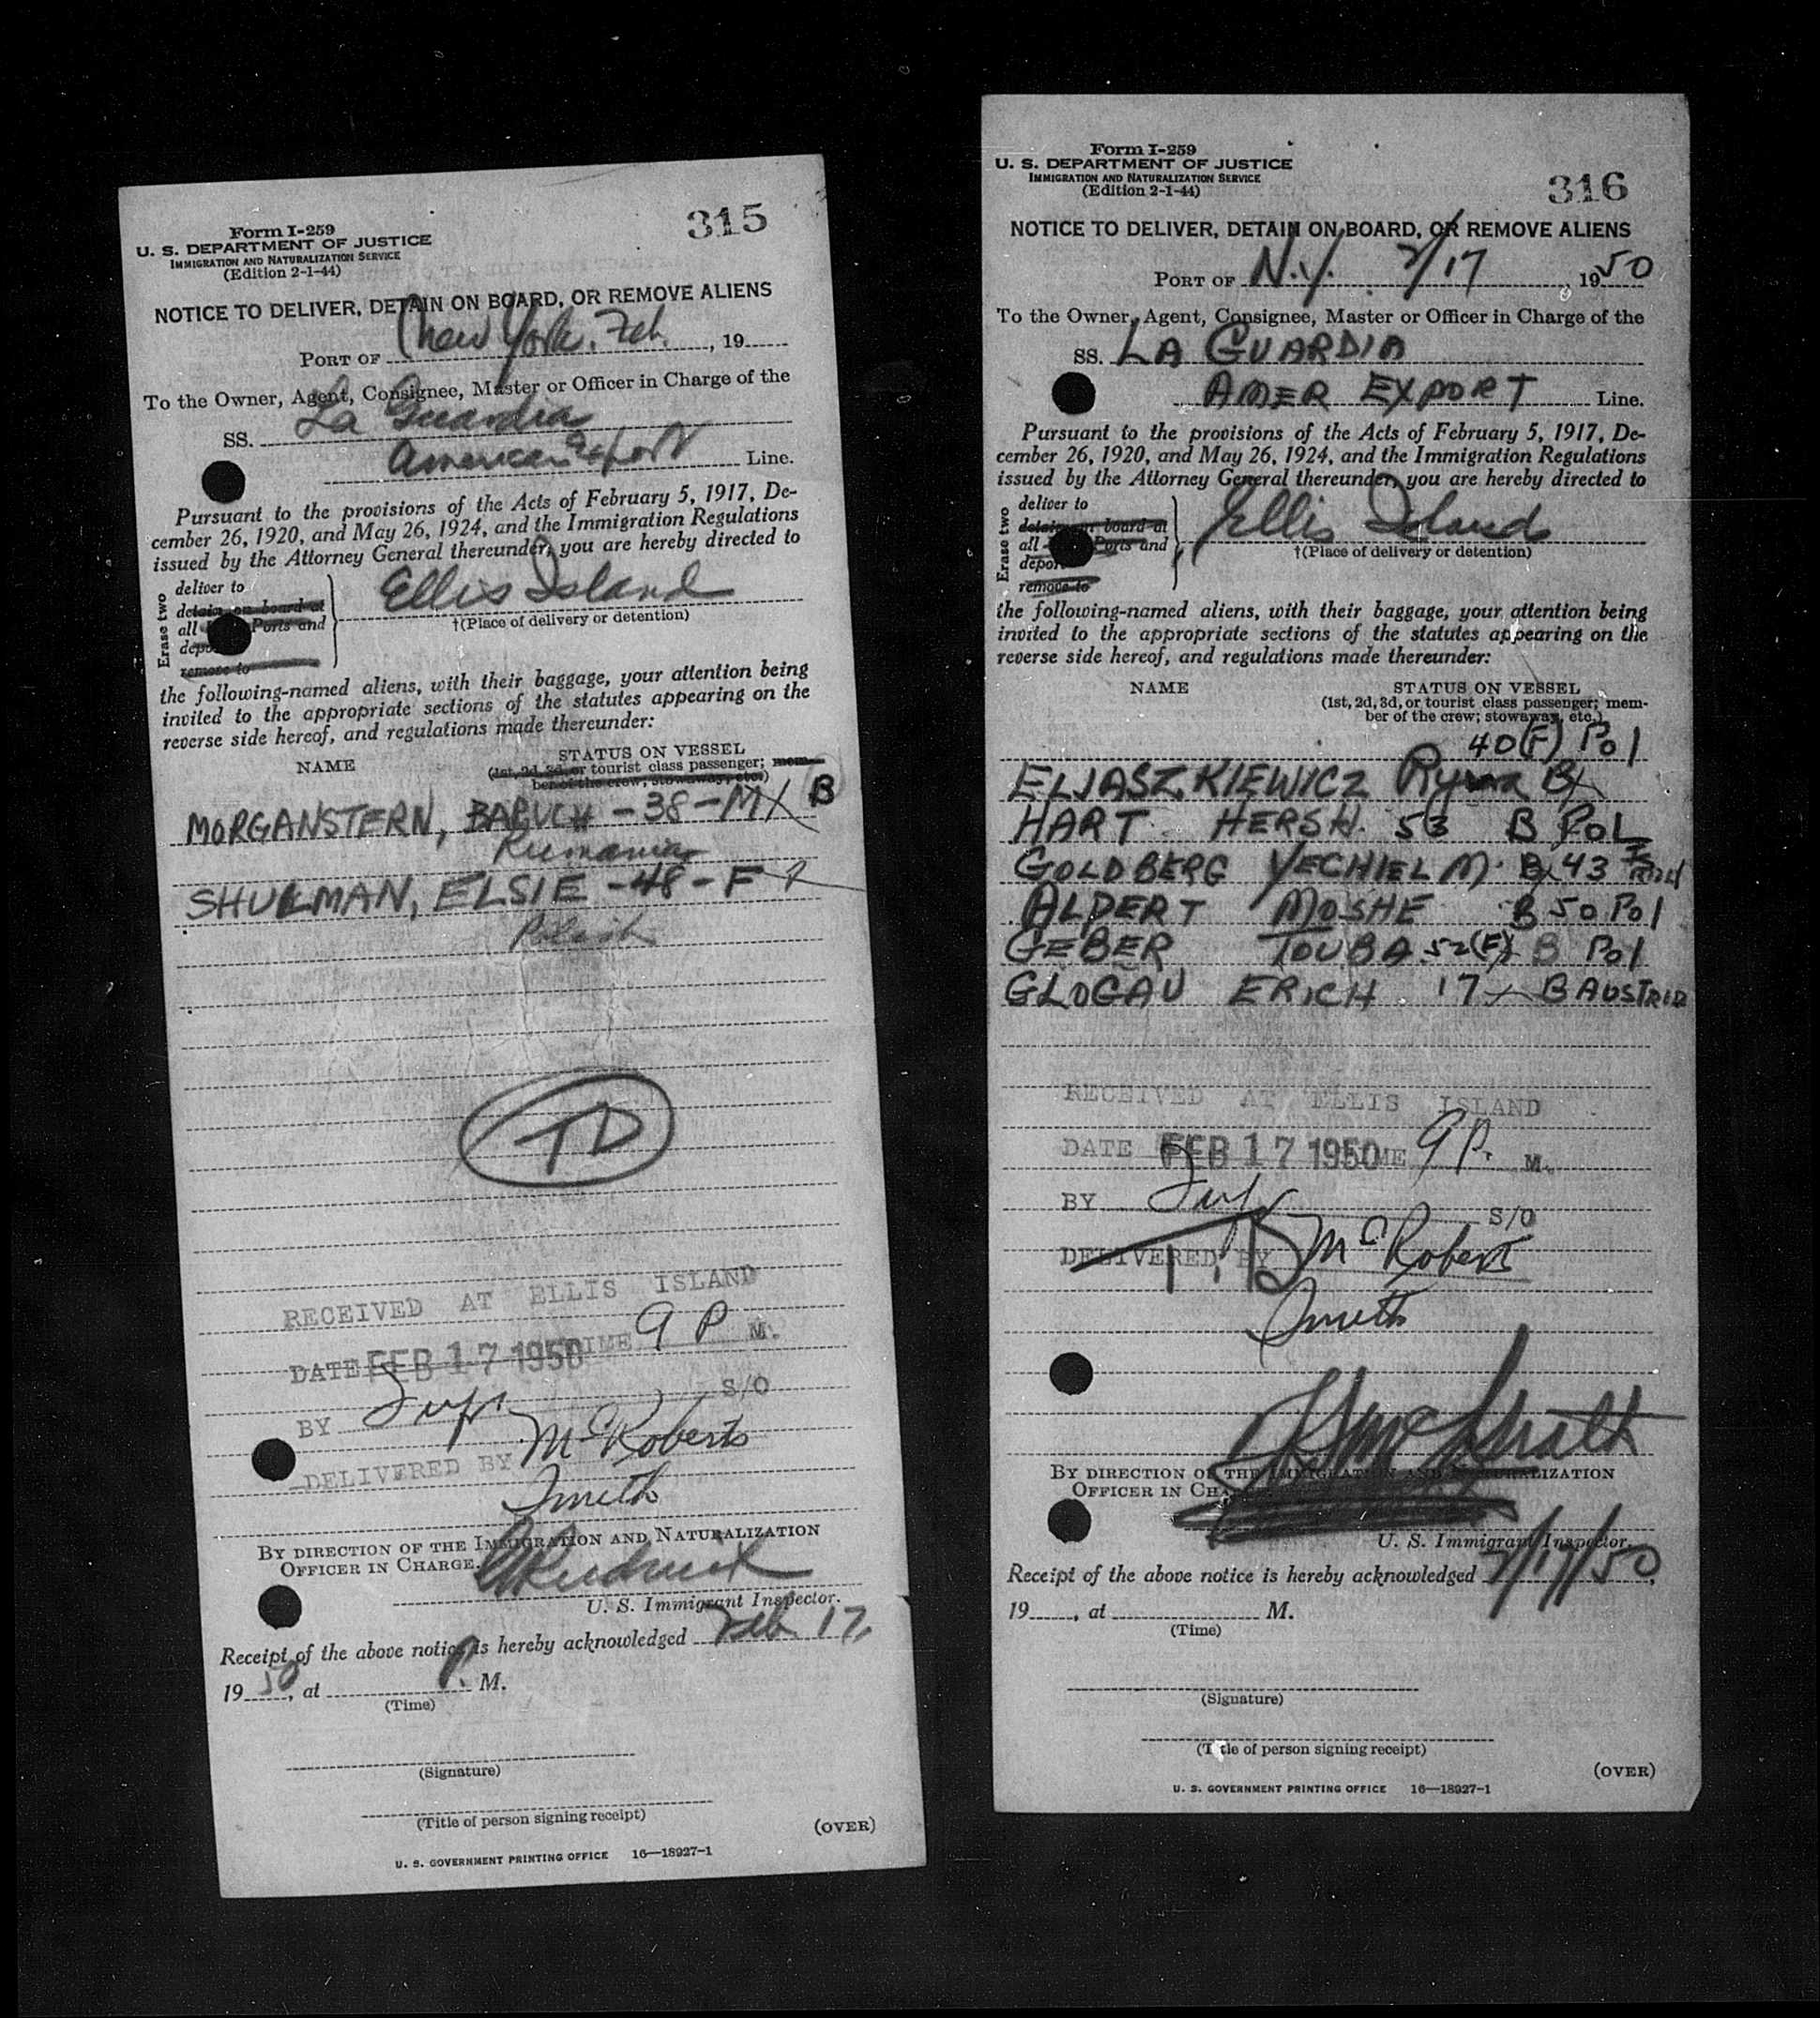 Form I-259
U. S. DEPARTMENT OF JUSTICE
IMMIGRATION AND NATURALIZATION SERVICE
(Edition 2-1-44)
315
NOTICE TO DELIVER, DETAIN ON BOARD, OR REMOVE ALIENS
PORT OF New York, Feb. , 19
To the Owner, Agent, Consignee, Master or Officer in Charge of the
SS. La Guardia
American Export Line.
Pursuant to the provisions of the Acts of February 5, 1917, De-
cember 26, 1920, and May 26, 1924, and the Immigration Regulations
issued by the Attorney General thereunder, you are hereby directed to
Erase two
deliver to
detain on board at
all Ports and
remove to
Ellis Island
†(Place of delivery or detention)
the following-named aliens, with their baggage, your attention being
invited to the appropriate sections of the statutes appearing on the
reverse side hereof, and regulations made thereunder:
NAME
STATUS ON VESSEL
(1st, 2d, 3d, or tourist class passenger; mem-
ber of the crew; stowaway, etc.)
MORGANSTERN, BARUCH - 38 - M X B
Rumania
SHULMAN, ELSIE - 48 - F
Polish
TD
RECEIVED AT ELLIS ISLAND
DATE FEB 17 1950 TIME 9 P M.
BY S/O
DELIVERED BY McRoberts
Smith
BY DIRECTION OF THE IMMIGRATION AND NATURALIZATION
OFFICER IN CHARGE.
U. S. Immigrant Inspector.
Receipt of the above notice is hereby acknowledged Feb. 17,
19 50, at P. M.
(Time)
(Signature)
(Title of person signing receipt)
(OVER)
U. S. GOVERNMENT PRINTING OFFICE 16—18927-1
Form I-259
U. S. DEPARTMENT OF JUSTICE
IMMIGRATION AND NATURALIZATION SERVICE
(Edition 2-1-44)
316
NOTICE TO DELIVER, DETAIN ON BOARD, OR REMOVE ALIENS
PORT OF N.Y. 2/17 , 1950
To the Owner, Agent, Consignee, Master or Officer in Charge of the
SS. LA GUARDIA
AMER EXPORT Line.
Pursuant to the provisions of the Acts of February 5, 1917, De-
cember 26, 1920, and May 26, 1924, and the Immigration Regulations
issued by the Attorney General thereunder, you are hereby directed to
Erase two
deliver to
detain on board at
all Ports and
remove to
Ellis Island
†(Place of delivery or detention)
the following-named aliens, with their baggage, your attention being
invited to the appropriate sections of the statutes appearing on the
reverse side hereof, and regulations made thereunder:
NAME
STATUS ON VESSEL
(1st, 2d, 3d, or tourist class passenger; mem-
ber of the crew; stowaway, etc.)
40(F) Pol
ELJASZKIEWICZ B
HART HERSH. 53 B POL
GOLDBERG YECHIEL M. B 43
ALPERT MOSHE B 50 Pol
GEBER TOUBA 52(F) B Pol
GLOGAU ERICH 17 B AUSTRIA
RECEIVED AT ELLIS ISLAND
DATE FEB 17 1950 TIME 9 P. M.
BY S/O
DELIVERED BY McRoberts
Smith
BY DIRECTION OF THE IMMIGRATION AND NATURALIZATION
OFFICER IN CHARGE.
U. S. Immigrant Inspector.
Receipt of the above notice is hereby acknowledged 2/17/50,
19 , at M.
(Time)
(Signature)
(Title of person signing receipt)
(OVER)
U. S. GOVERNMENT PRINTING OFFICE 16—18927-1